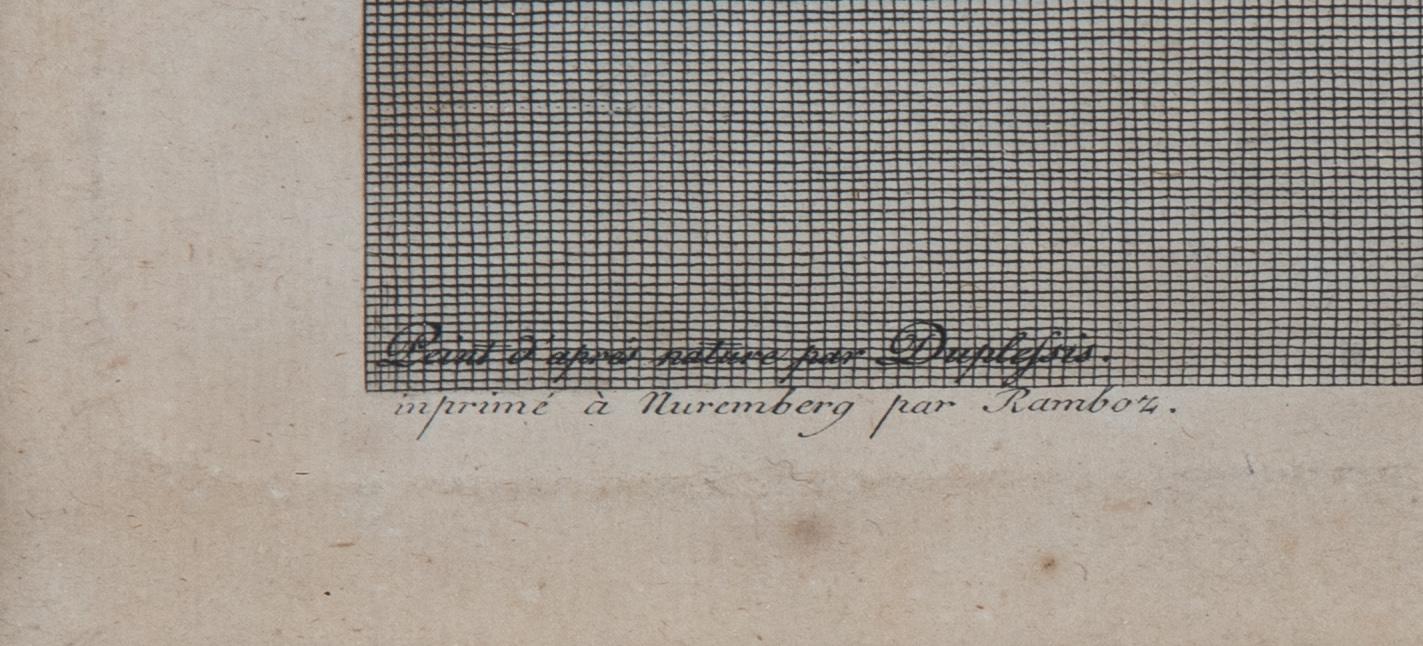 Peint d'aprés nature par Dupleſsis.
inprimé à Nuremberg par Ramboz.